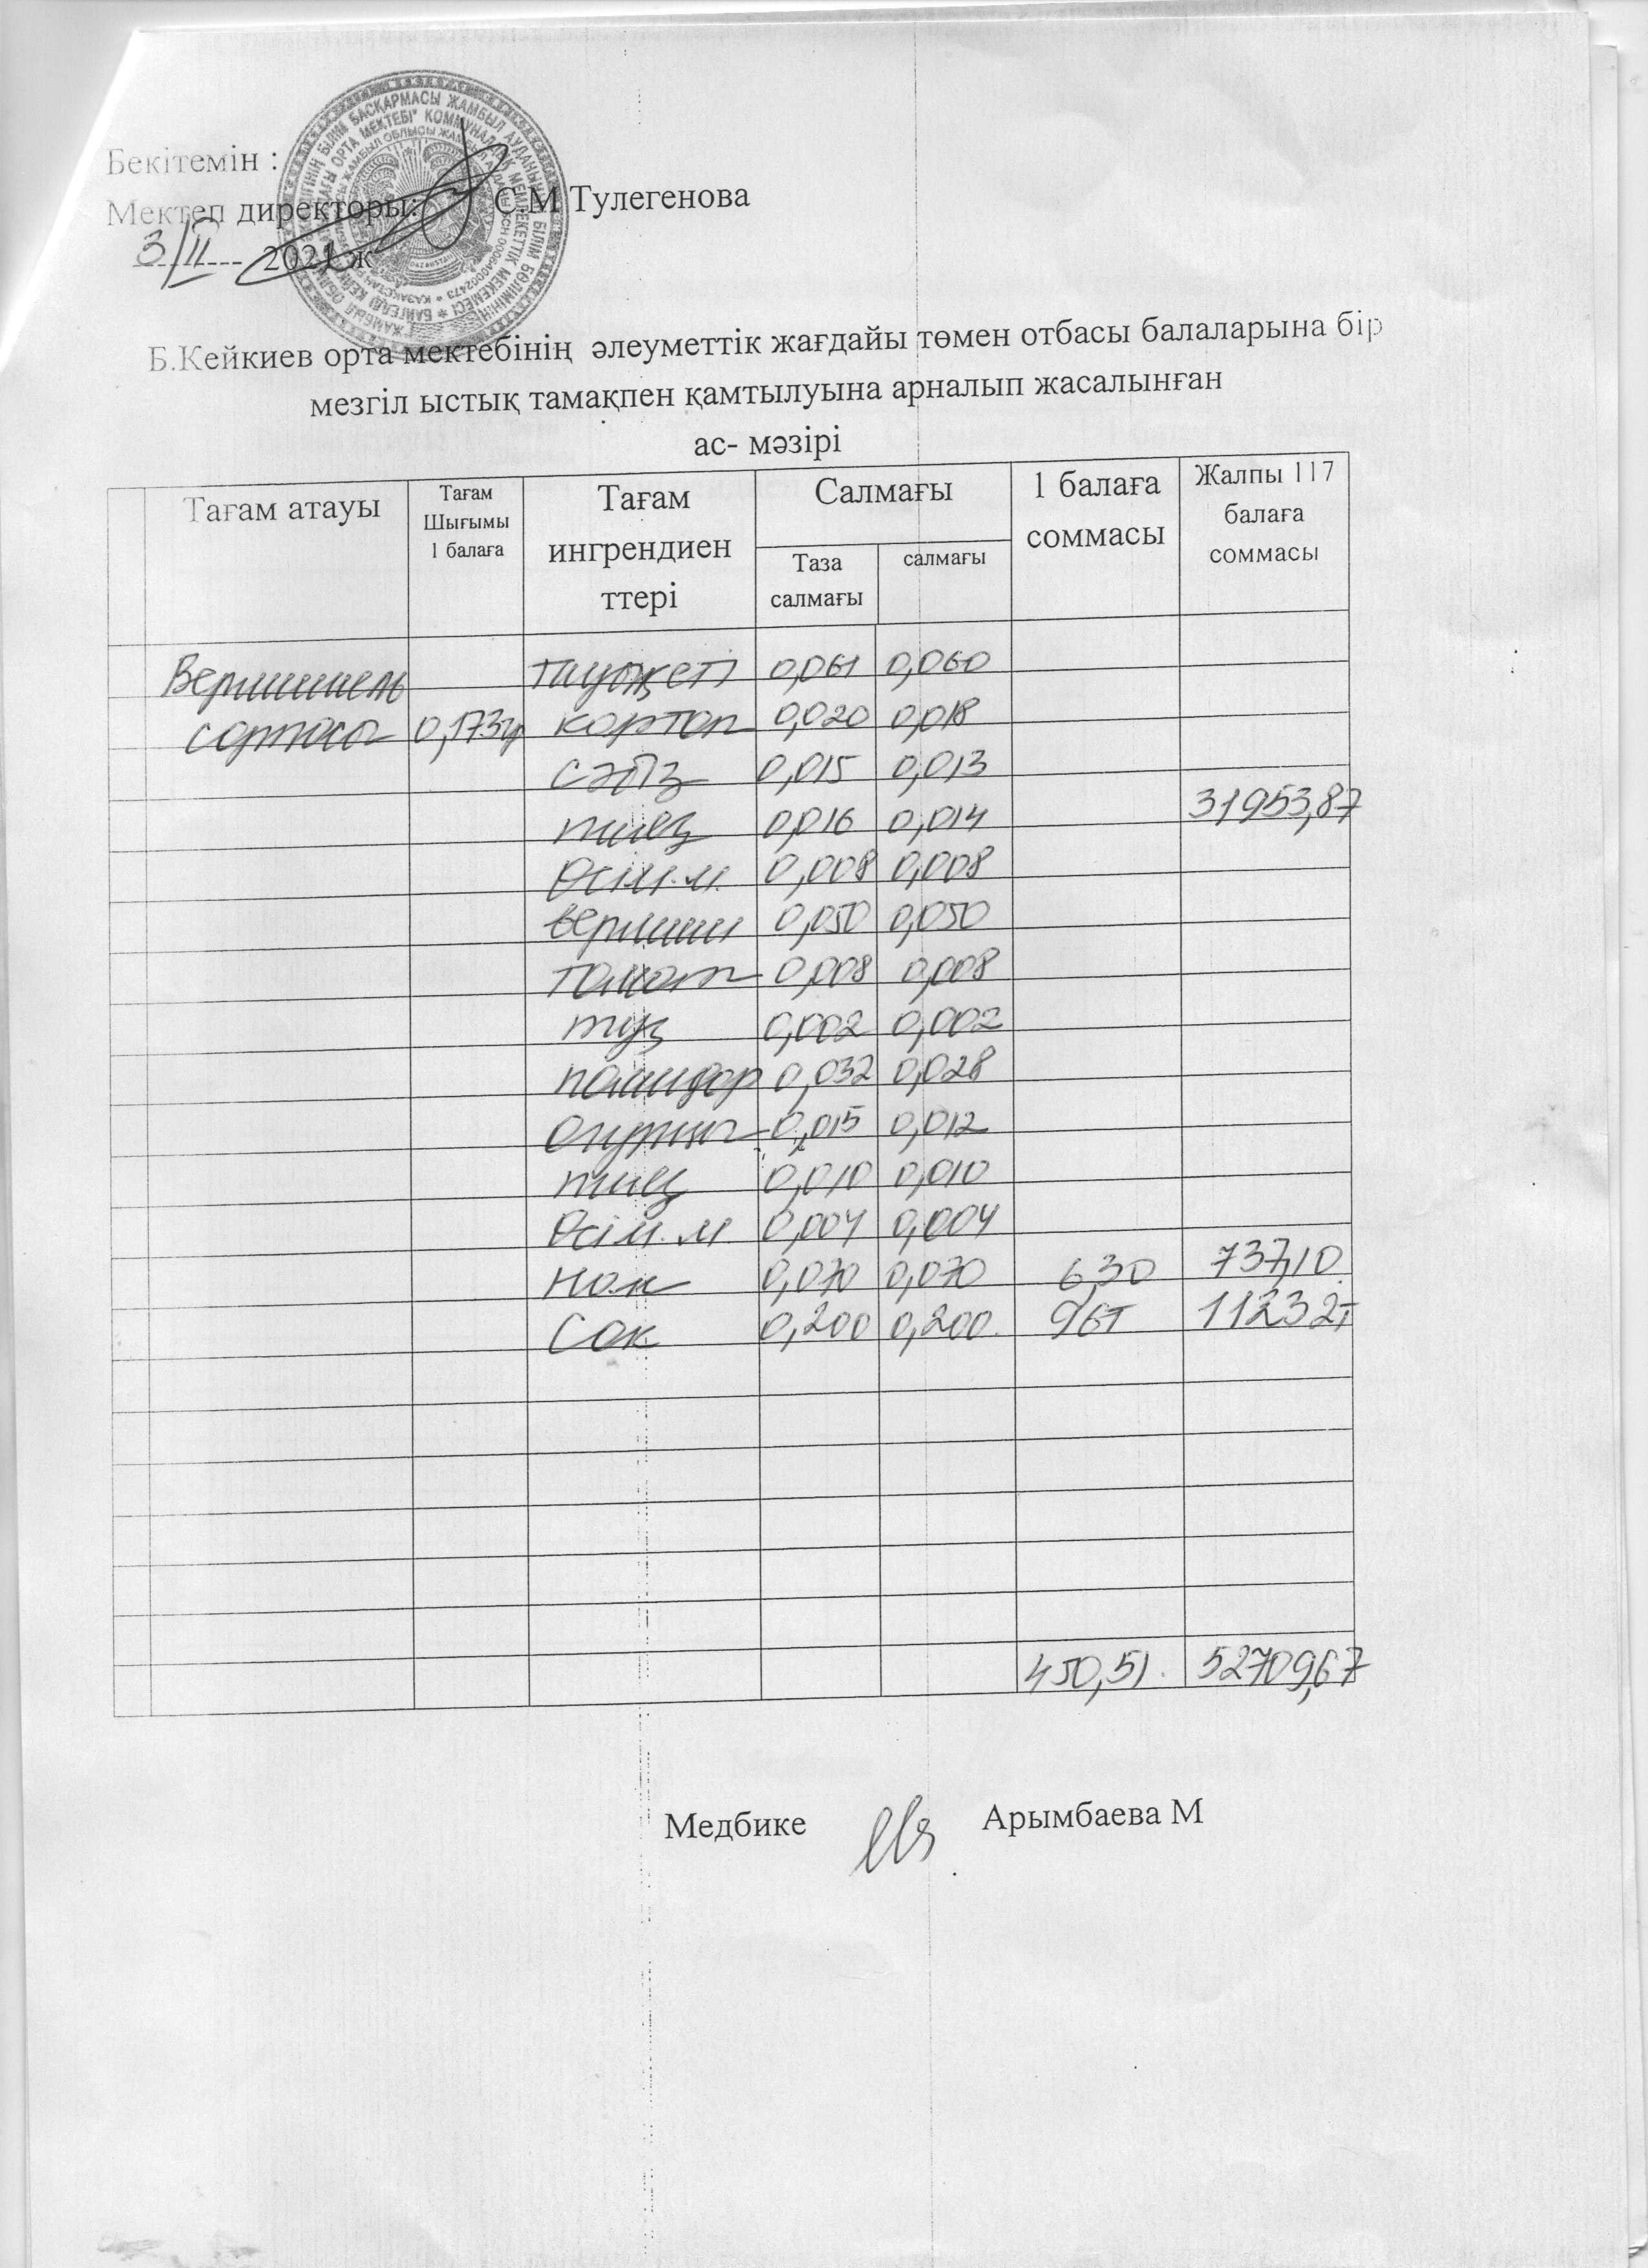 Бекітемін :
Мектеп директоры: С.М Тулегенова
3/II 2021 ж
Б.Кейкиев орта мектебінің әлеуметтік жағдайы төмен отбасы балаларына бір
мезгіл ыстық тамақпен қамтылуына арналып жасалынған
ас- мәзірі
Тағам атауы
Тағам
Шығымы
1 балаға
Тағам
ингрендиен
ттері
Салмағы
Таза
салмағы
салмағы
1 балаға
соммасы
Жалпы 117
балаға
соммасы
Вермишель тауық еті 0,061 0,060
сорпасы 0,173гр картоп 0,020 0,018
сәбіз 0,015 0,013
пияз 0,016 0,014 31953,87
Өсім.м. 0,008 0,008
вермиш 0,050 0,050
томат 0,008 0,008
тұз 0,002 0,002
помидор 0,032 0,028
Огурцы 0,015 0,012
пияз 0,010 0,010
Өсім.м. 0,004 0,004
нан 0,070 0,070 6,30 737,10
Сок 0,200 0,200. 96т 11232т
450,51. 52709,67
Медбике Арымбаева М